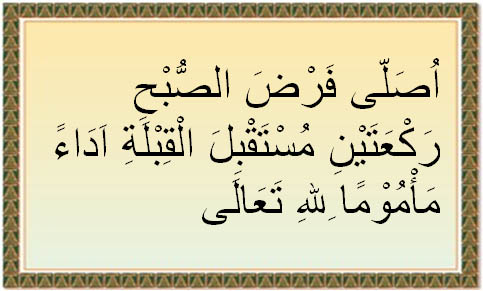 اُصَلِّى فَرْضَ الصُّبْحِ
رَكْعَتَيْنِ مُسْتَقْبِلَ الْقِبْلَةِ اَدَاءً
مَأْمُوْمًا ِللهِ تَعَالَى